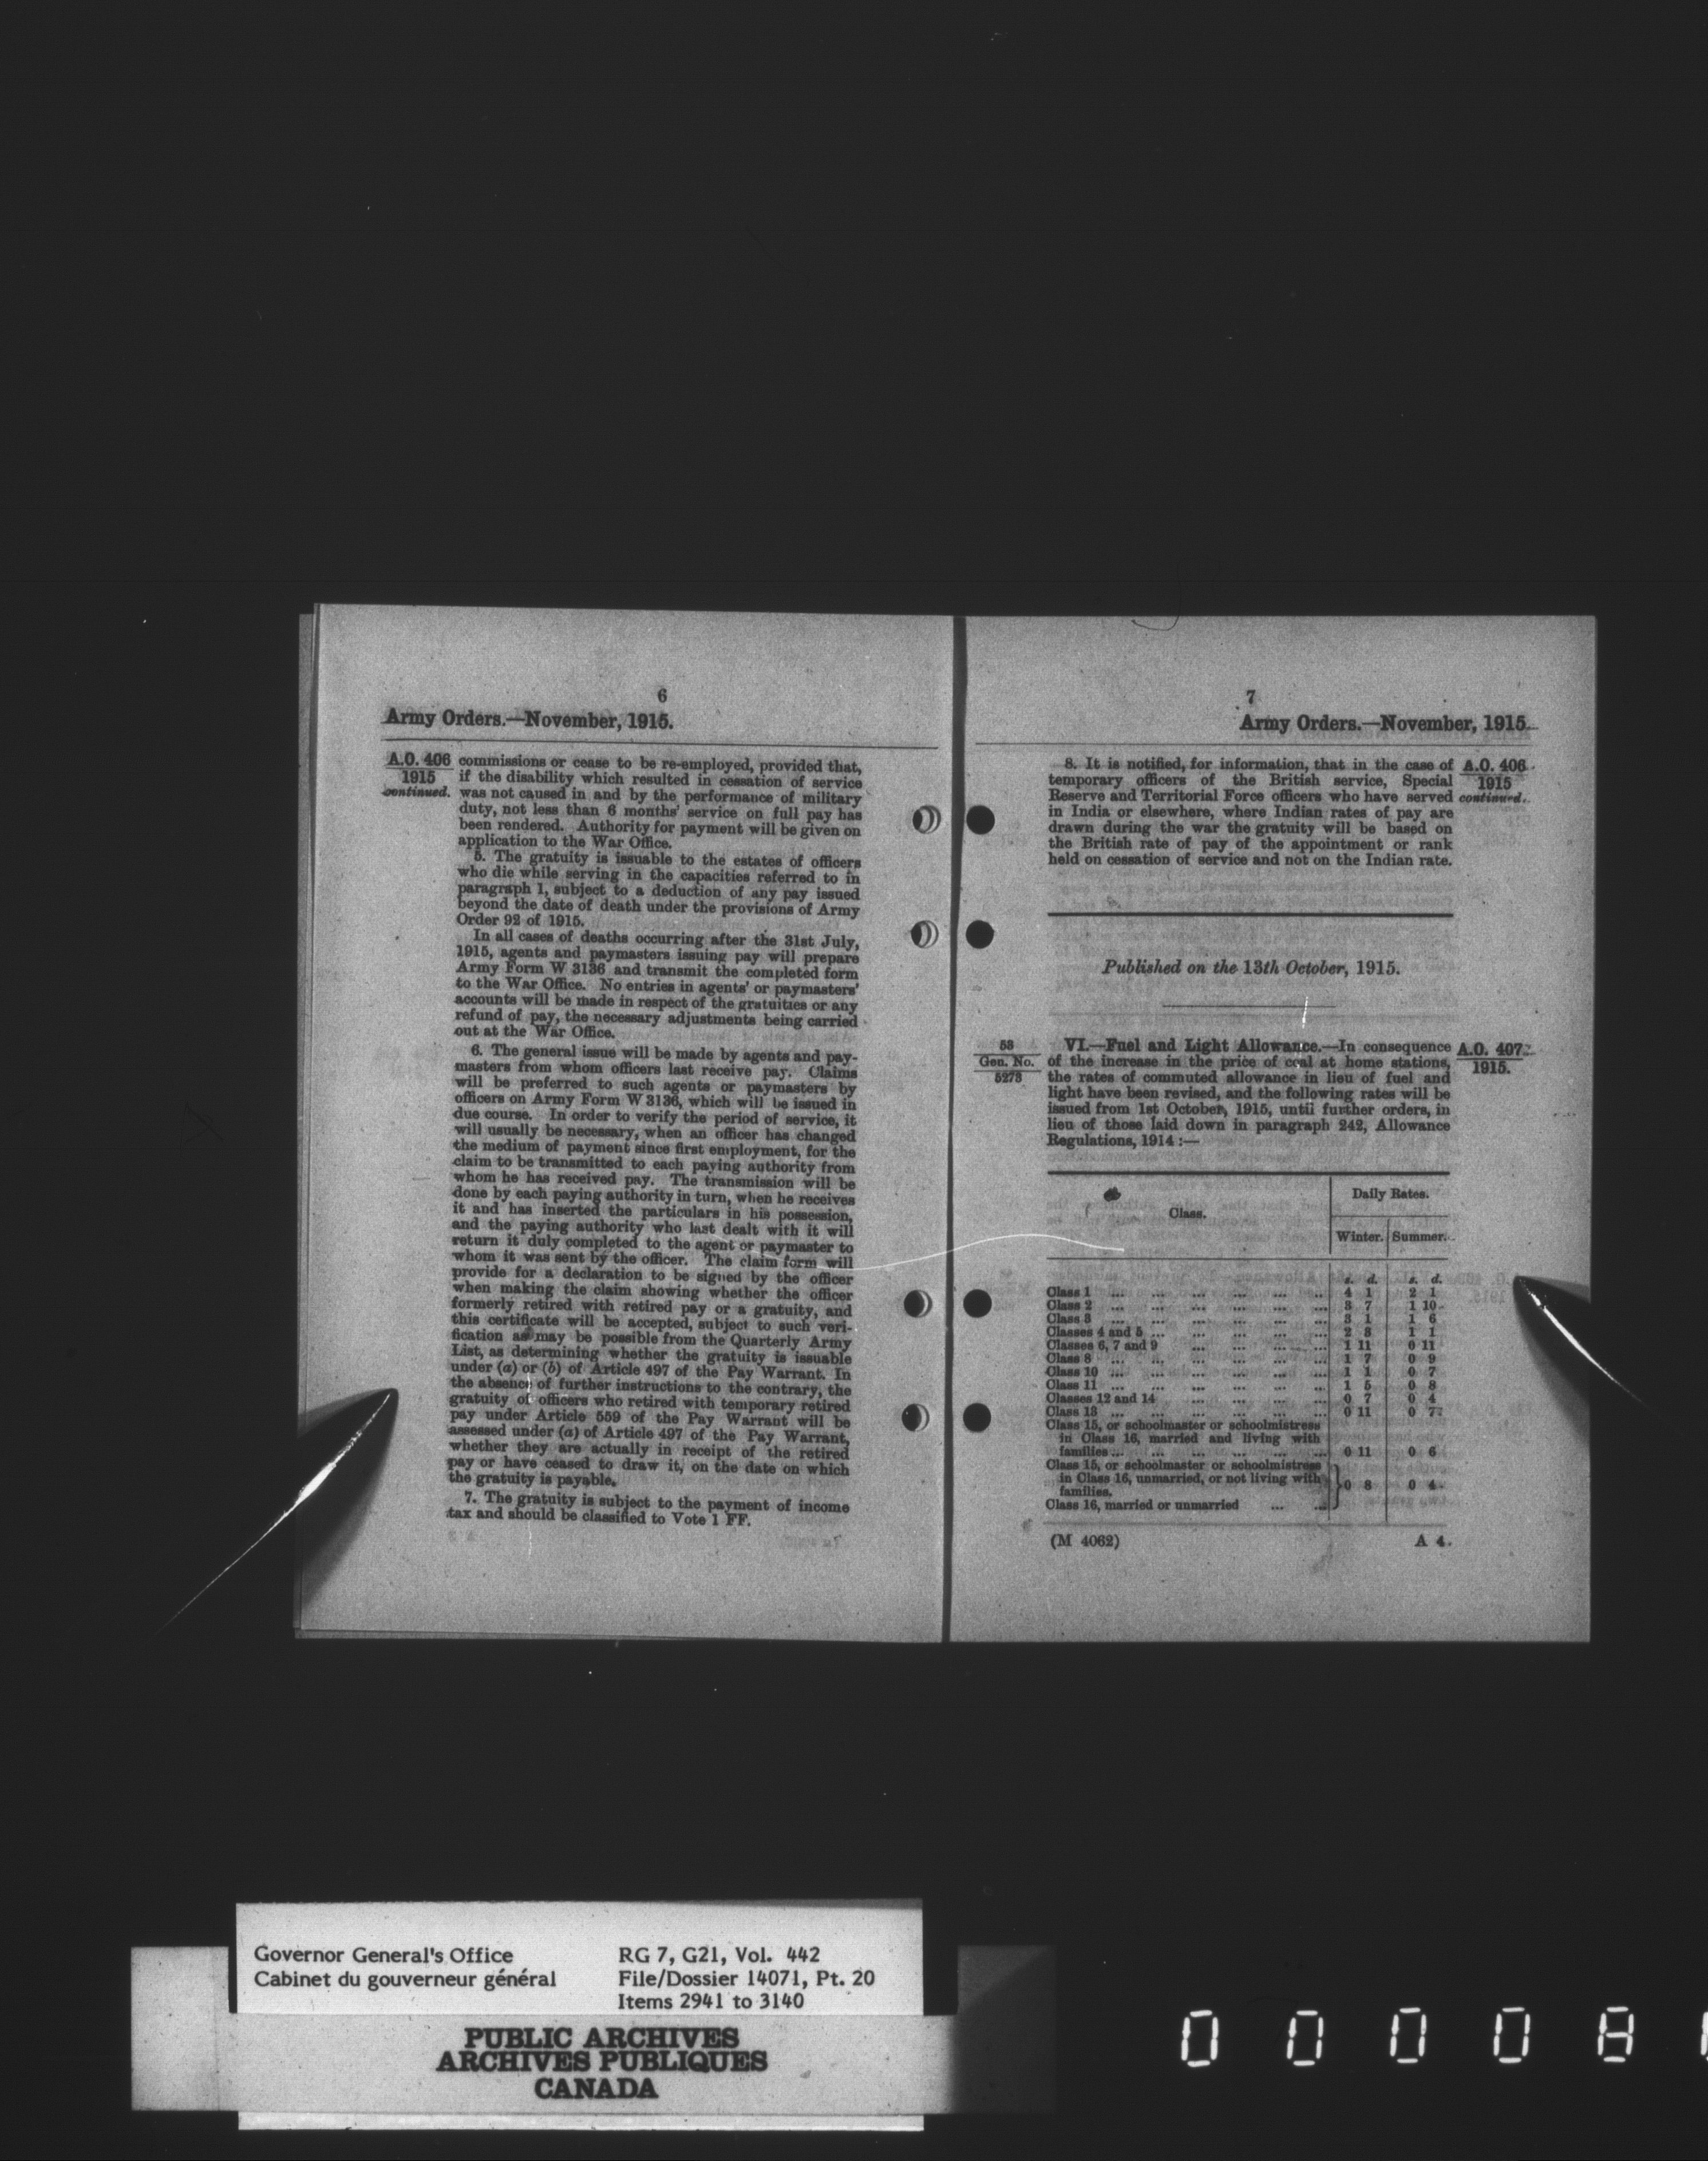 6
Army Orders.—November, 1915.
A.O. 406
1915
continued.
commissions or cease to be re-employed, provided that,
if the disability which resulted in cessation of service
was not caused in and by the performance of military
duty, not less than 6 months' service on full pay has
been rendered. Authority for payment will be given on
application to the War Office.
5. The gratuity is issuable to the estates of officers
who die while serving in the capacities referred to in
paragraph 1, subject to a deduction of any pay issued
beyond the date of death under the provisions of Army
Order 92 of 1915.
In all cases of deaths occurring after the 31st July,
1915, agents and paymasters issuing pay will prepare
Army Form W 3136 and transmit the completed form
to the War Office. No entries in agents' or paymasters'
accounts will be made in respect of the gratuities or any
refund of pay, the necessary adjustments being carried
out at the War Office.
6. The general issue will be made by agents and pay-
masters from whom officers last receive pay. Claims
will be preferred to such agents or paymasters by
officers on Army Form W 3136, which will be issued in
due course. In order to verify the period of service, it
will usually be necessary, when an officer has changed
the medium of payment since first employment, for the
claim to be transmitted to each paying authority from
whom he has received pay. The transmission will be
done by each paying authority in turn, when he receives
it and has inserted the particulars in his possession,
and the paying authority who last dealt with it will
return it duly completed to the agent or paymaster to
whom it was sent by the officer. The claim form will
provide for a declaration to be signed by the officer
when making the claim showing whether the officer
formerly retired with retired pay or a gratuity, and
this certificate will be accepted, subject to such veri-
fication as may be possible from the Quarterly Army
List, as determining whether the gratuity is issuable
under (a) or (b) of Article 497 of the Pay Warrant. In
the absence of further instructions to the contrary, the
gratuity of officers who retired with temporary retired
pay under Article 559 of the Pay Warrant will be
assessed under (a) of Article 497 of the Pay Warrant,
whether they are actually in receipt of the retired
pay or have ceased to draw it, on the date on which
the gratuity is payable.
7. The gratuity is subject to the payment of income
tax and should be classified to Vote 1 FF.
7
Army Orders.—November, 1915.
8. It is notified, for information, that in the case of
temporary officers of the British service, Special
Reserve and Territorial Force officers who have served
in India or elsewhere, where Indian rates of pay are
drawn during the war the gratuity will be based on
the British rate of pay of the appointment or rank
held on cessation of service and not on the Indian rate.
A.O. 406
1915
continued.
Published on the 13th October, 1915.
53
Gen. No.
5273
VI.—Fuel and Light Allowance.—In consequence
of the increase in the price of coal at home stations,
the rates of commuted allowance in lieu of fuel and
light have been revised, and the following rates will be
issued from 1st October, 1915, until further orders, in
lieu of those laid down in paragraph 242, Allowance
Regulations, 1914 :—
A.O. 407
1915.
Class. Daily Rates.
Winter. Summer.
s. d. s. d.
Class 1 ... ... ... ... ... ... 4 1 2 1
Class 2 ... ... ... ... ... ... 3 7 1 10
Class 3 ... ... ... ... ... ... 3 1 1 6
Classes 4 and 5 ... ... ... ... ... 2 3 1 1
Classes 6, 7 and 9 ... ... ... ... 1 11 0 11
Class 8 ... ... ... ... ... ... 1 7 0 9
Class 10 ... ... ... ... ... ... 1 1 0 7
Class 11 ... ... ... ... ... ... 1 5 0 8
Classes 12 and 14 ... ... ... ... 0 7 0 4
Class 13 ... ... ... ... ... ... 0 11 0 7
Class 15, or schoolmaster or schoolmistress
in Class 16, married and living with
families ... ... ... ... ... ... 0 11 0 6
Class 15, or schoolmaster or schoolmistress
in Class 16, unmarried, or not living with
families. 0 8 0 4
Class 16, married or unmarried ... ...
(M 4062) A 4
Governor General's Office
Cabinet du gouverneur général
RG 7, G21, Vol. 442
File/Dossier 14071, Pt. 20
Items 2941 to 3140
PUBLIC ARCHIVES
ARCHIVES PUBLIQUES
CANADA
00008